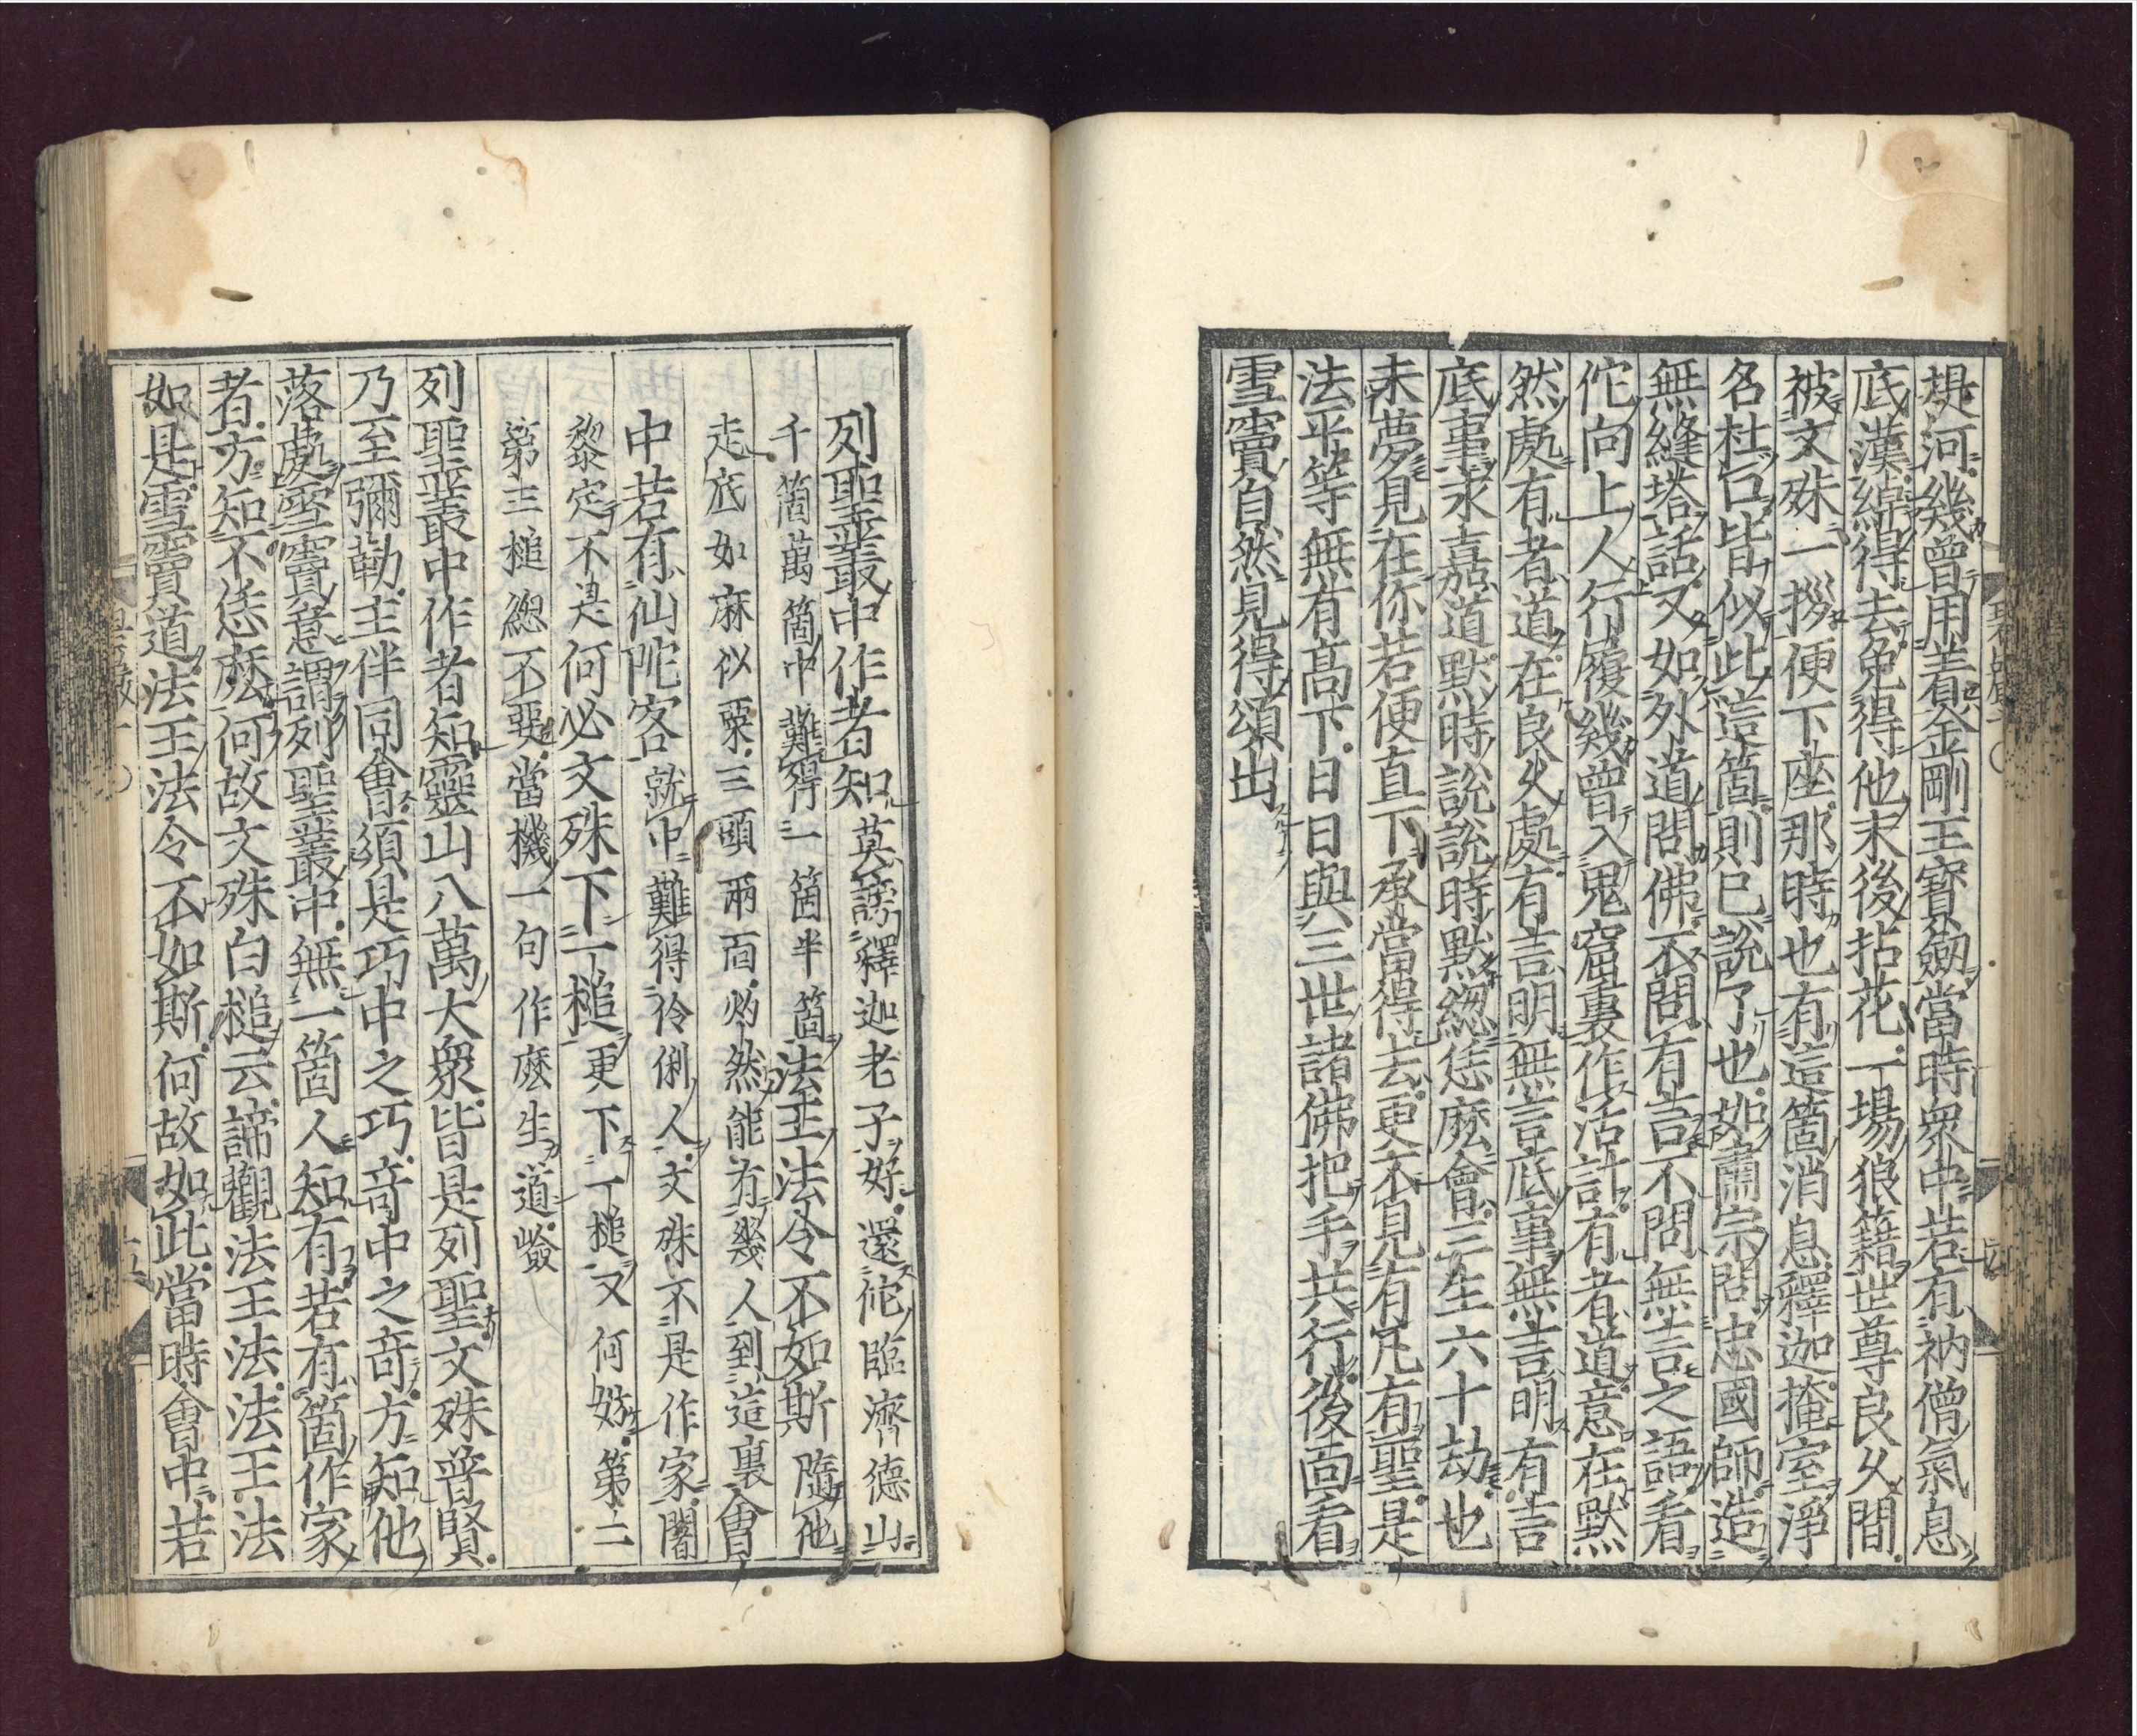 提河幾曾用着金剛王寶劔當時衆中若有衲僧氣息
底漢綽得去免得他末後拈花一場狼籍世尊良久間
被文殊一拶便下座那時也有這箇消息釋迦掩室淨
名杜口皆似此這箇則已說了也如肅宗問忠國師造
無縫塔話又如外道問佛不問有言不問無言之語看
佗向上人行履幾曾入鬼窟裏作活計有者道意在默
然處有者道在良久處有言明無言底事無言明有言
底事永嘉道默時說說時默緫恁麽會三生六十劫也
未夢見在你若便直下承當得去更不見有凡有聖是
法平等無有高下日日與三世諸佛把手共行後面看
雪竇自然見得頌出
列聖叢中作者知莫謗釋迦老子好還佗臨濟德山
千箇萬箇中難得一箇半箇法王法令不如斯隨他
走底如麻似粟三頭兩面灼然能有幾人到這裏會
中若有仙陀客就中難得伶俐人文殊不是作家闍
黎定不是何必文殊下一槌更下一槌又何妨第二
第三槌緫不要當機一句作麽生道嶮
列聖叢中作者知靈山八萬大衆皆是列聖文殊普賢
乃至彌勒主伴同會須是巧中之巧奇中之奇方知他
落處雪竇意謂列聖叢中無一箇人知有若有箇作家
者方知不恁麽何故文殊白槌云諦觀法王法法王法
如是雪竇道法王法令不如斯何故如此當時會中若